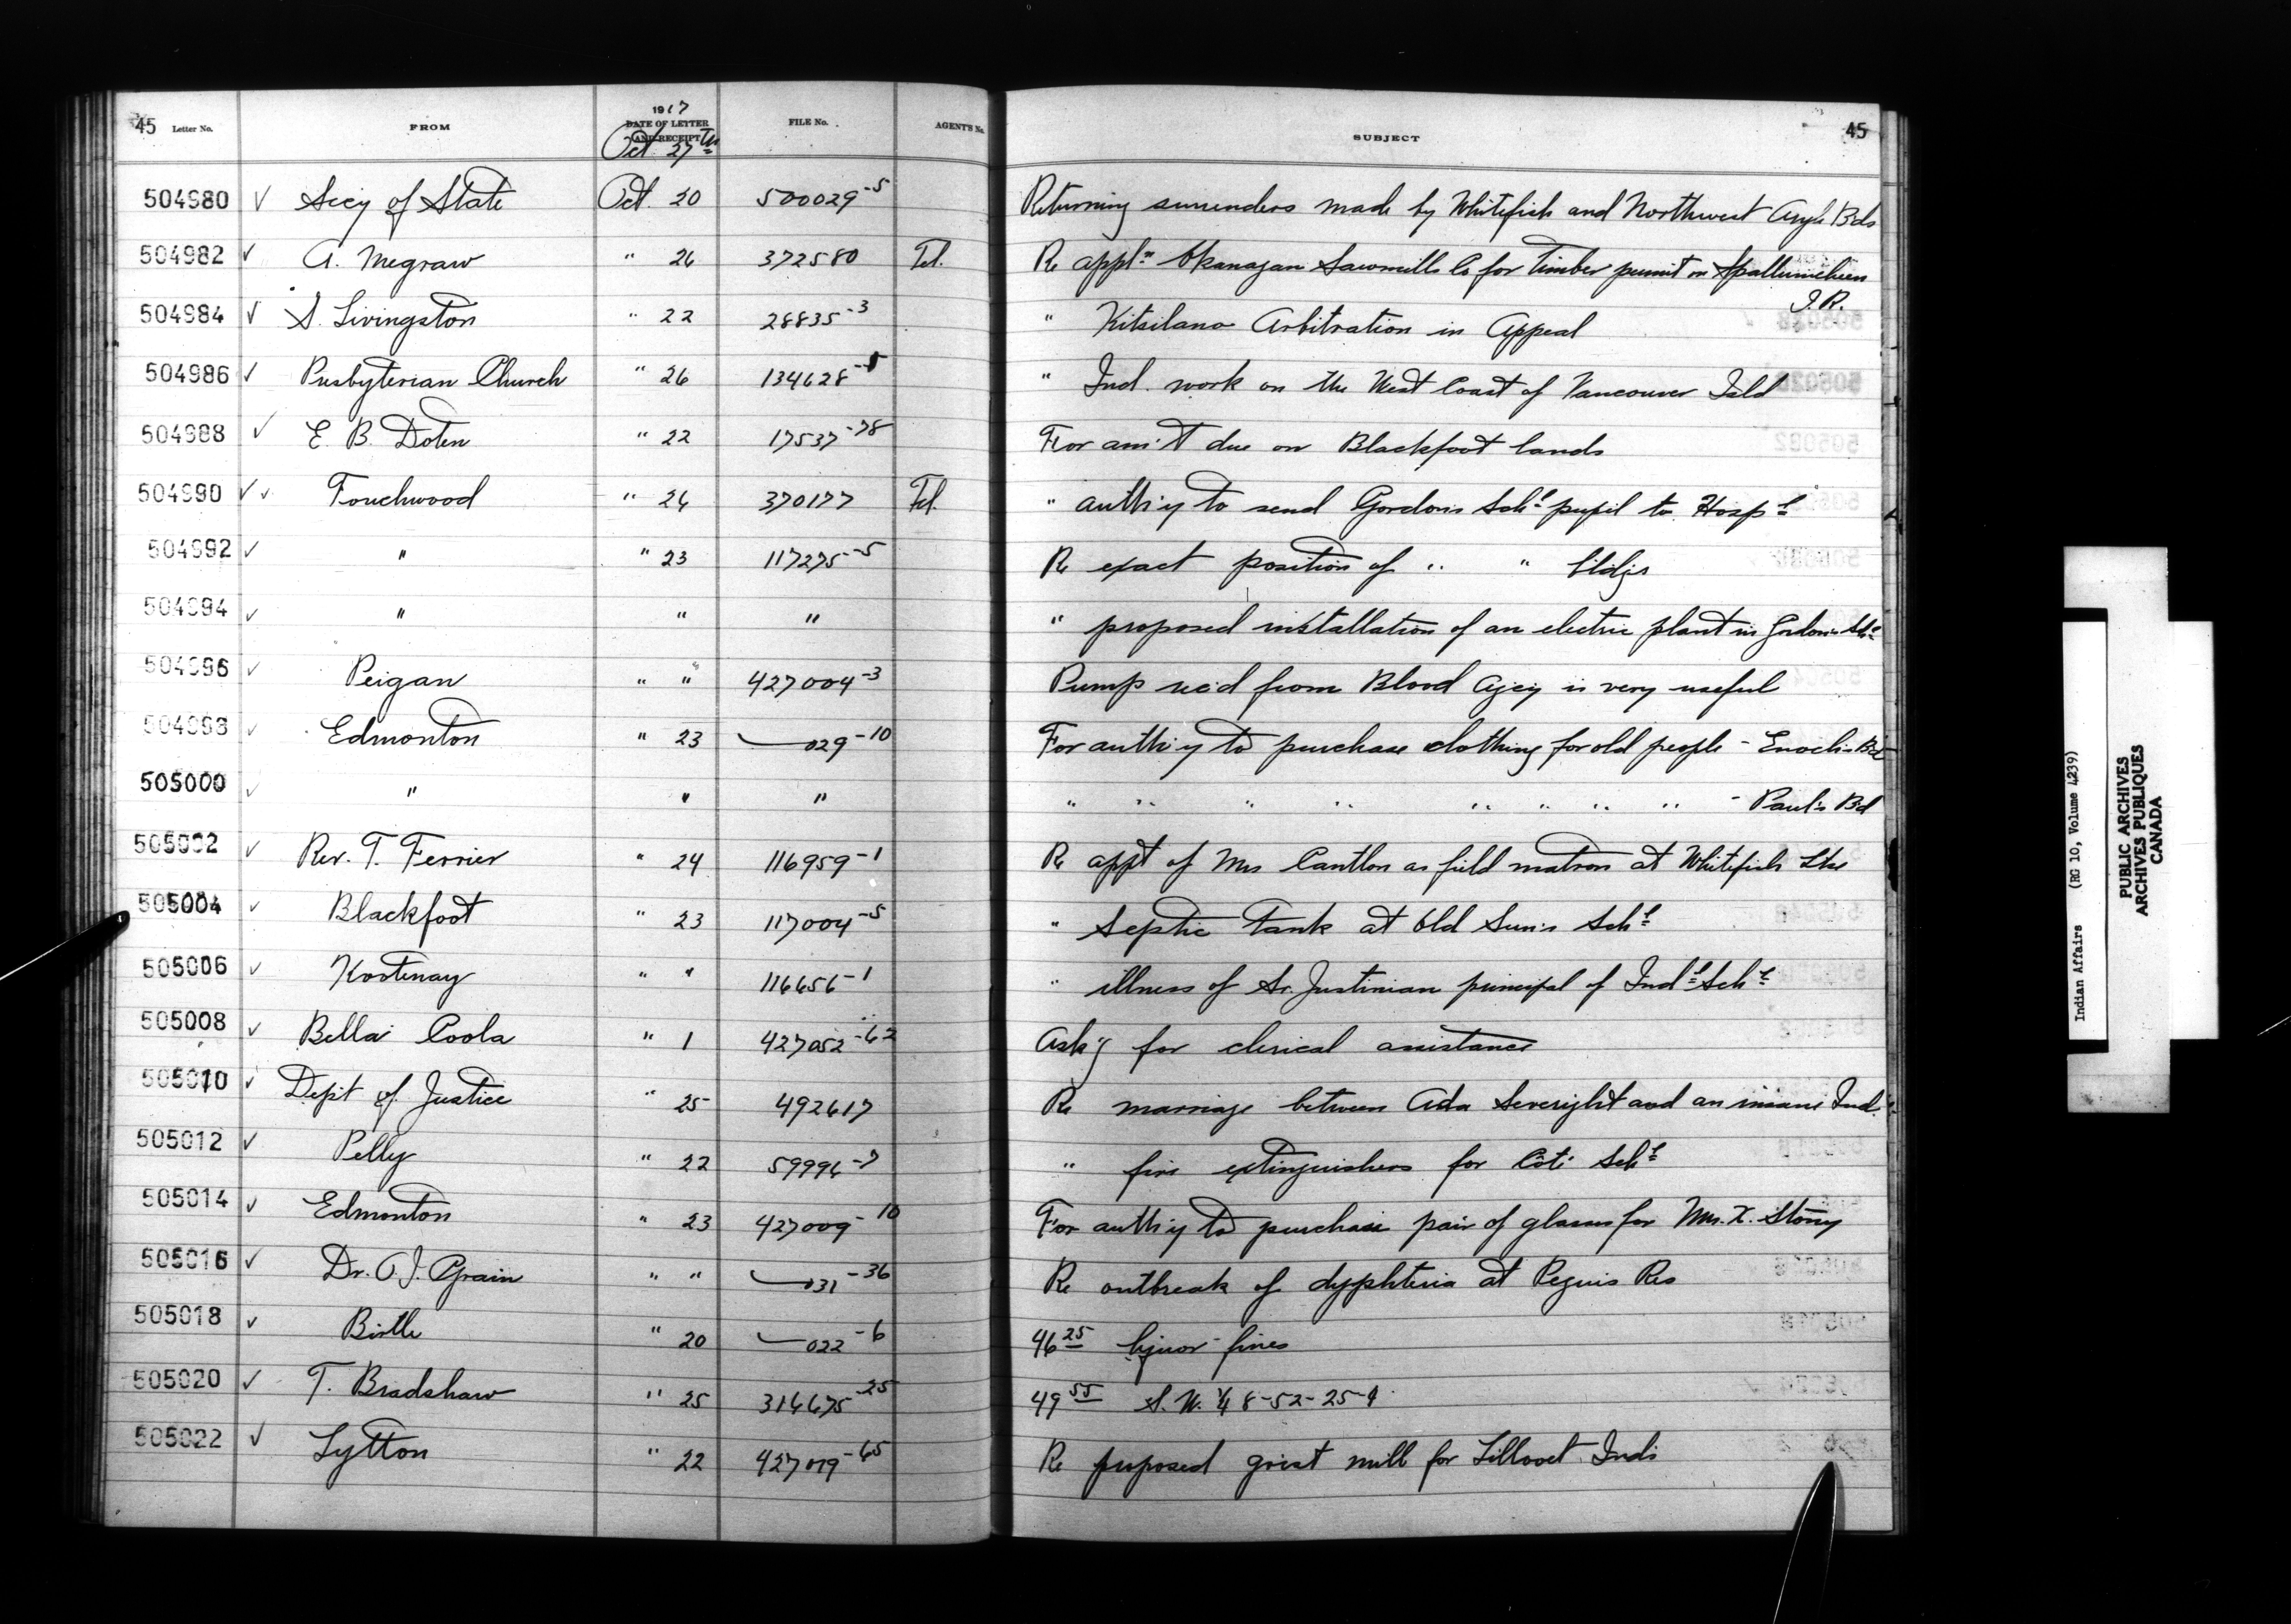 45 Letter No. FROM 1917 DATE OF LETTER AND RECEIPT FILE No. AGENT'S No. SUBJECT 45
Oct. 27th
504980 ✓ Sec'y of State Oct. 20 500029-5 Returning surrenders made by Whitefish and Northwest Angle Bds
504982 ✓ A. Megraw " 26 372580 Tel. Re appl'n Okanagan Sawmills Co for timber permit on Spallumcheen
I.R.
504984 ✓ S. Livingston " 22 28835-3 " Kitsilano Arbitration in Appeal
504986 ✓ Presbyterian Church " 26 134628-5 " Ind. work on the West Coast of Vancouver Isld
504988 ✓ E. B. Doten " 22 17537-78 For am't due on Blackfoot lands
504990 ✓ ✓ Touchwood " 26 370177 Tel. " auth'y to send Gordon's Schl pupil to Hospl
504992 ✓ " " 23 117275-5 Re exact position of " " bldgs
504994 ✓ " " " " proposed installation of an electric plant in Gordon's Schl
504996 ✓ Peigan " " 427004-3 Pump rec'd from Blood Agcy is very useful
504998 ✓ Edmonton " 23 029-10 For auth'y to purchase clothing for old people - Enoch's Bd
505000 ✓ " " " " " " " " " " " - Paul's Bd
505002 ✓ Rev. T. Ferrier " 24 116959-1 Re appt of Mrs Cantlon as field matron at Whitefish Lke
505004 ✓ Blackfoot " 23 117004-5 " Septic Tank at Old Sun's Schl
505006 ✓ Kootenay " " 116656-1 " illness of Sr. Justinian principal of Indl Schl
505008 ✓ Bella Coola " 1 427052-62 Ask'g for clerical assistance
505010 ✓ Dep't of Justice " 25 492617 Re marriage between Ada Severight and an insane Ind.
505012 ✓ Pelly " 22 59996-7 " fire extinguishers for Coté Schl
505014 ✓ Edmonton " 23 427009-10 For auth'y to purchase pair of glasses for Mrs. X. Stony
505016 ✓ Dr. O.J. Grain " " 031-36 Re outbreak of dyphteria at Peguis Res
505018 ✓ Birtle " 20 022-6 46 25 liquor fines
505020 ✓ T. Bradshaw " 25 314675-25 49 55 S.W. ¼ 8-52-25-4
505022 ✓ Lytton " 22 427019-65 Re proposed grist mill for Lillooet Inds
Indian Affairs (RG 10, Volume 4239)
PUBLIC ARCHIVES
ARCHIVES PUBLIQUES
CANADA